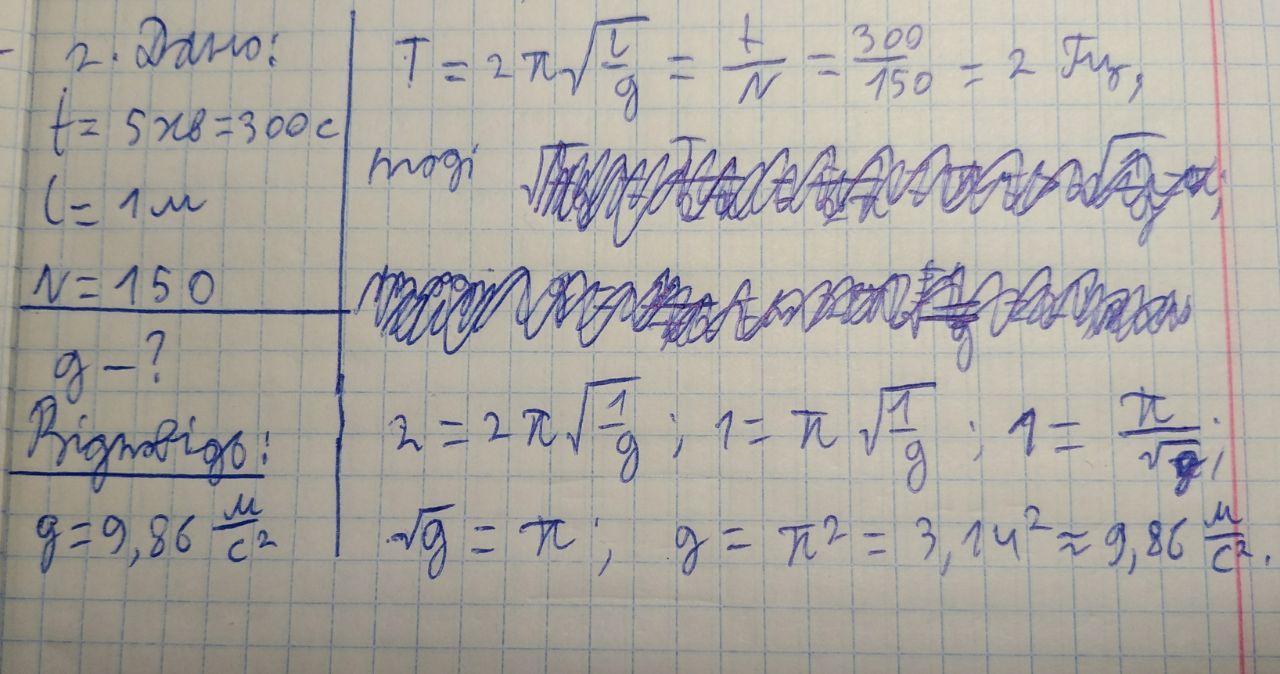 2. Дано:
t = 5 хв = 300 с
l = 1 м
N = 150
g – ?
Відповідь:
g = 9,86 м/с²
T = 2π√(l/g) = t/N = 300/150 = 2 Гц,
тоді
2 = 2π√(1/g) ; 1 = π√(1/g) ; 1 = π/√g ;
√g = π ; g = π² = 3,14² ≈ 9,86 м/с².